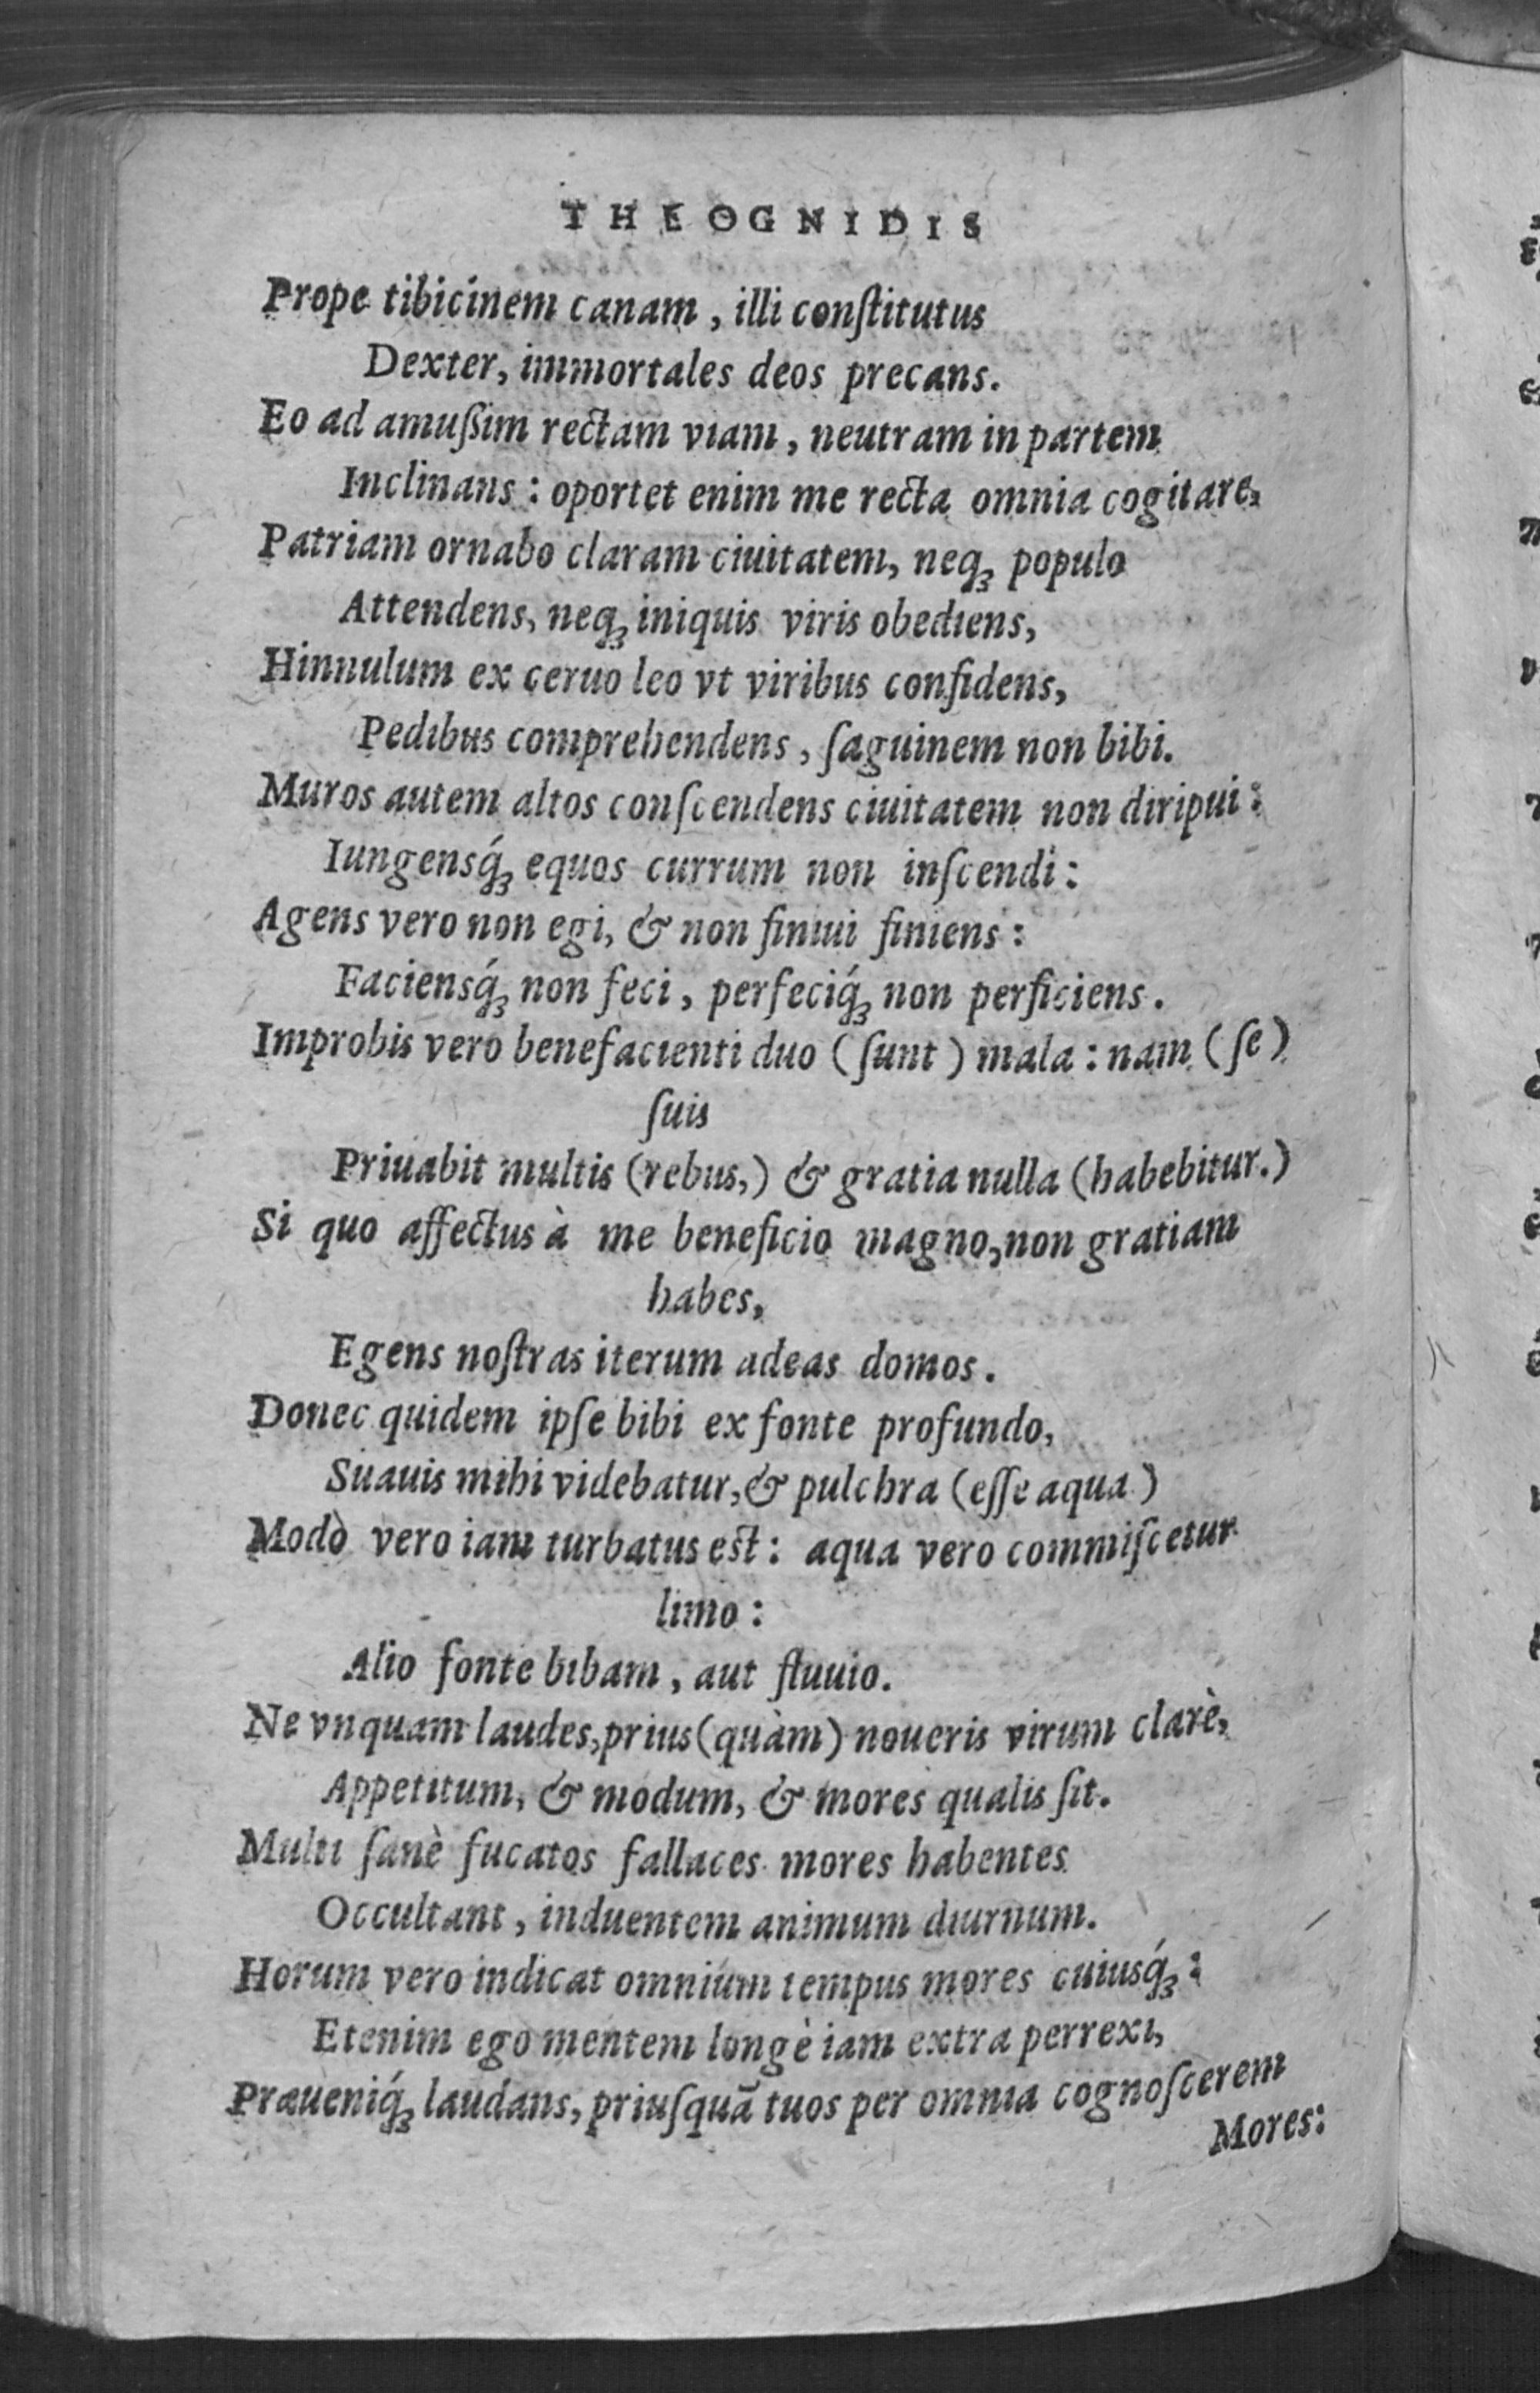 THEOGNIDIS
Prope tibicinem canam, illi conſtitutus
Dexter, immortales deos precans.
Eo ad amuſsim rectam viam, neutram in partem
Inclinans: oportet enim me recta omnia cogitare,
Patriam ornabo claram ciuitatem, neqꝫ populo
Attendens, neqꝫ iniquis viris obediens,
Hinnulum ex ceruo leo vt viribus confidens,
Pedibus comprehendens, ſaguinem non bibi.
Muros autem altos conſcendens ciuitatem non diripui:
Iungensq́ꝫ equos currum non inſcendi:
Agens vero non egi, & non finiui finiens:
Faciensq́ꝫ non feci, perfeciq́ꝫ non perficiens.
Improbis vero benefacienti duo (ſunt) mala: nam (ſe)
ſuis
Priuabit multis (rebus,) & gratia nulla (habebitur.)
Si quo affectus à me beneficio magno, non gratiam
habes,
Egens noſtras iterum adeas domos.
Donec quidem ipſe bibi ex fonte profundo,
Suauis mihi videbatur, & pulchra (eſſe aqua)
Modò vero iam turbatus eſt: aqua vero commiſcetur
limo:
Alio fonte bibam, aut fluuio.
Ne vnquam laudes, prius (quàm) noueris virum clarè,
Appetitum, & modum, & mores qualis ſit.
Multi ſanè fucatos fallaces mores habentes
Occultant, induentem animum diurnum.
Horum vero indicat omnium tempus mores cuiusq́ꝫ:
Etenim ego mentem longè iam extra perrexi,
Præueniq́ꝫ laudans, priuſquã tuos per omnia cognoſcerem
Mores: